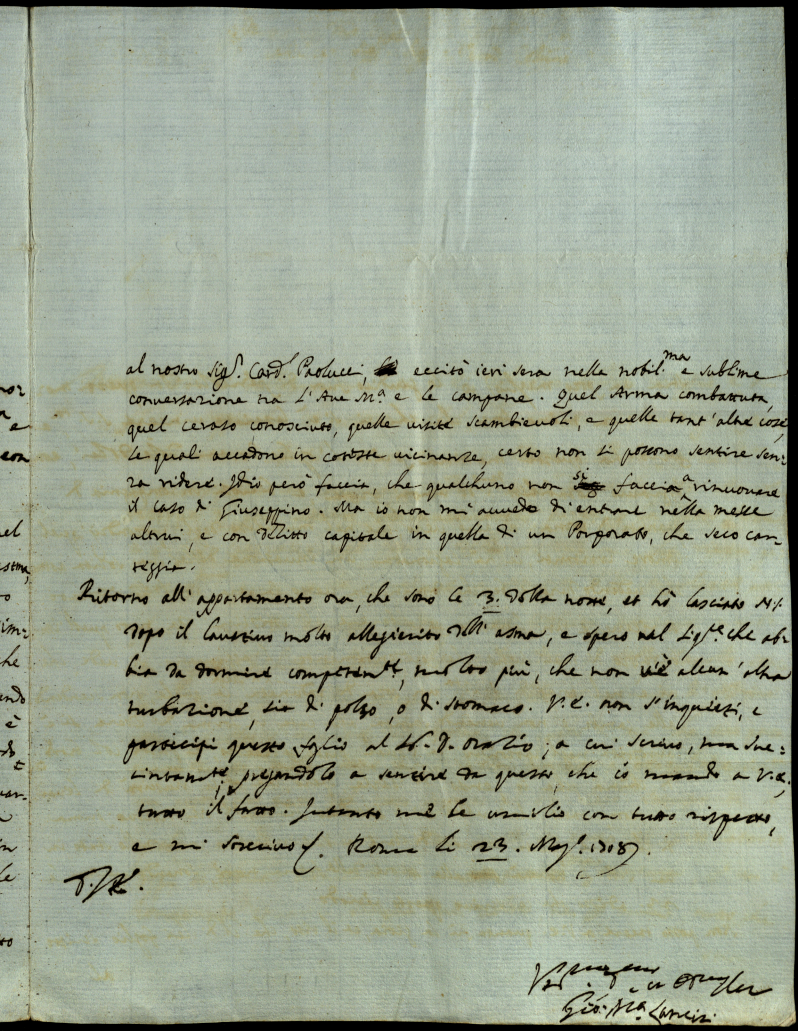 al nostro Sig.r Card.l Paolucci, eccitò ieri sera nella nobil.ma e sublime
conversazione tra l'Ave M.a e le campane. Quel Arma combattuta,
quel ceraso conosciuto, quelle visite scambievoli, e quelle tant'altre cose,
le quali accadono in coteste vicinanze, certo non si possono sentire sen=
za ridere. Idio però faccia, che qualchuno non si faccia a rinuovare
il caso di Giuseppino. Ma io non mi avvedo di entrare nella messe
altrui, e con delitto capitale in quella di un Porporato, che seco car=
teggia.
Ritorno all'appartamento ora, che sono le 3. della notte, et hò lasciato N.S.
dopo il laustivo molto allegierito dell'asma, e spero nel Sig.re che ab=
bia da dormire competentem.te, molto più, che non vi è alcun'altra
turbazione, sia di polso, o di stomaco. V.E. non s'inquieti, e
partecipi questo foglio al S.r D. Orazio; a cui scrivo, ma suc=
cintam.te, pregandolo a sentire da questo, che io mando a V.E.,
tutto il fatto. Intanto me le umilio con tutto rispetto,
e mi sottoscrivo. Roma li 23. Mag.o 1708.
Gio. M.a Lancisi